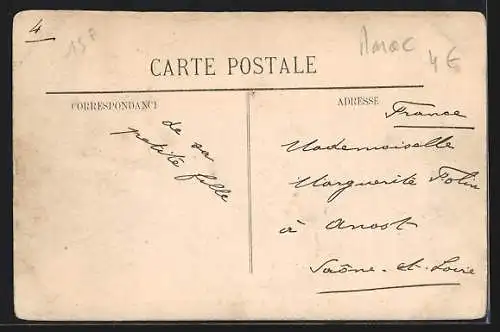 4
15F
Maroc
4€
CARTE POSTALE
CORRESPONDANCE
ADRESSE
de sa
petite fille
France
Mademoiselle
Marguerite
à Anost
Saône-et-Loire